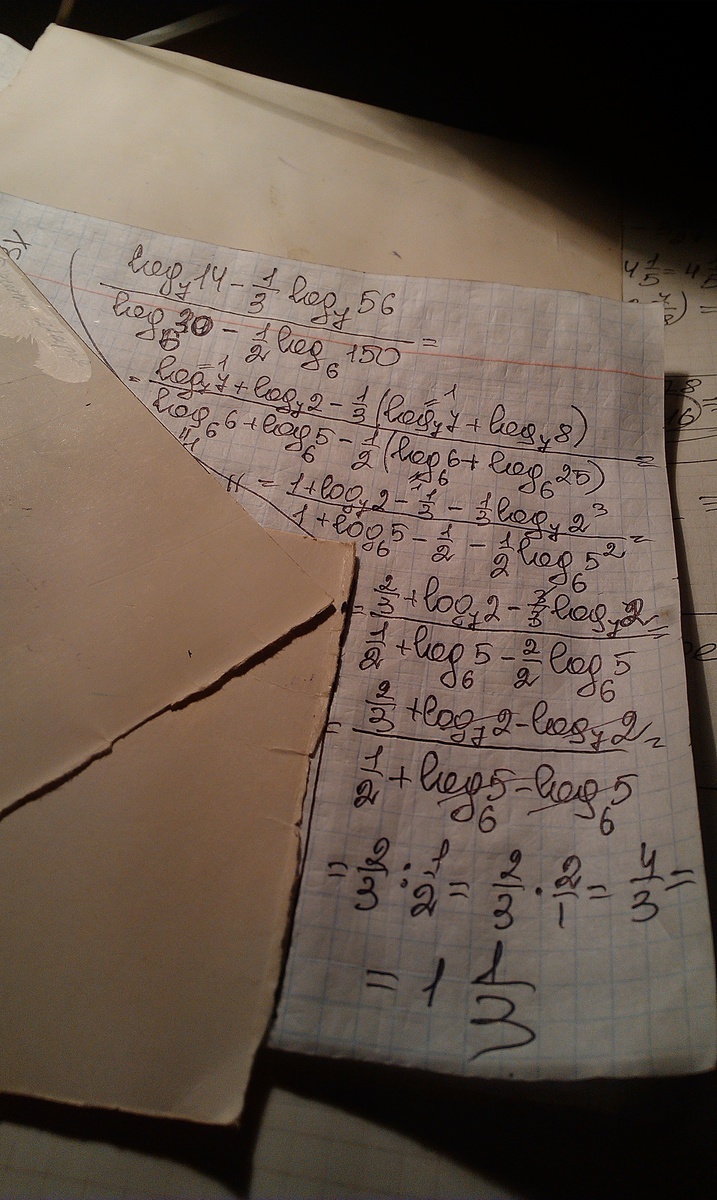 log₇14 - 1/3 log₇56
log₆30 - 1/2 log₆150 =
= log₇7 + log₇2 - 1/3 (log₇7 + log₇8)
log₆6 + log₆5 - 1/2 (log₆6 + log₆25) =
= 1 + log₇2 - 1/3 - 1/3 log₇2³
1 + log₆5 - 1/2 - 1/2 log₆5² =
= 2/3 + log₇2 - 3/3 log₇2
1/2 + log₆5 - 2/2 log₆5 =
= 2/3 + log₇2 - log₇2 =
1/2 + log₆5 - log₆5
= 2/3 : 1/2 = 2/3 · 2/1 = 4/3 =
= 1 1/3
4 1/5 = 4